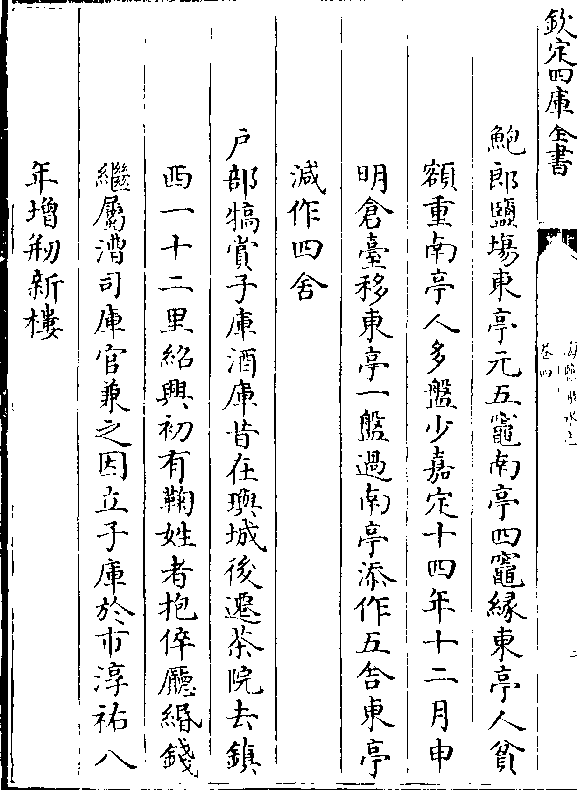 欽定四庫全書
卷四
鮑郎鹽場東亭元五竈南亭四竈緣東亭人貧
額重南亭人多盤少嘉定十四年十二月申
明倉臺移東亭一盤過南亭添作五舍東亭
減作四舍
戶部犒賞子庫酒庫昔在璵城後遷茶院去鎮
西一十二里紹興初有鞠姓者抱倅廳緡錢
繼屬漕司庫官兼之因立子庫於市淳祐八
年增刱新樓